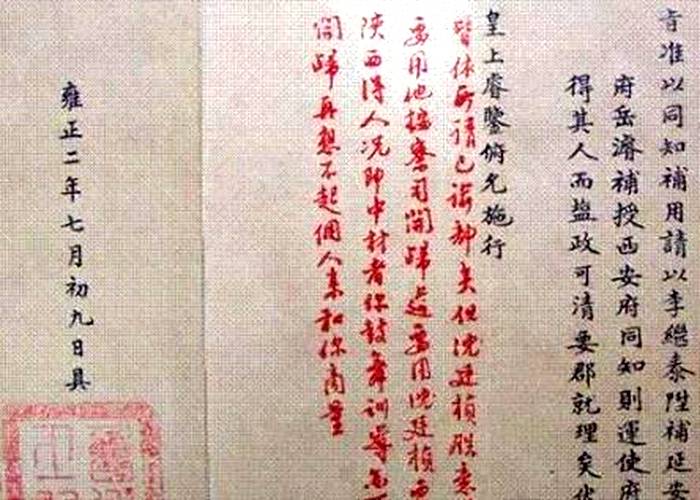 旨准以同知補用請以李繼泰陞補延安
府岳濬補授西安府同知則運使府
得其人而鹽政可清要郡就理矣伏
皇上睿鑒俯允施行
皆依所請已諭部矣但沈廷楨朕意
要用他按察司開歸道要用沈廷楨
陝西得人況即中材者你鼓舞訓導
開歸再想不起個人來和你商量
雍正二年七月初九日具